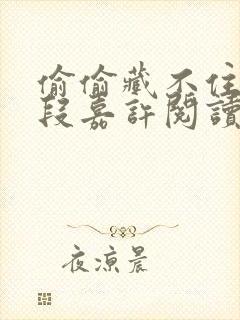 偷偷藏不住
段嘉許閱讀
夜涼晨